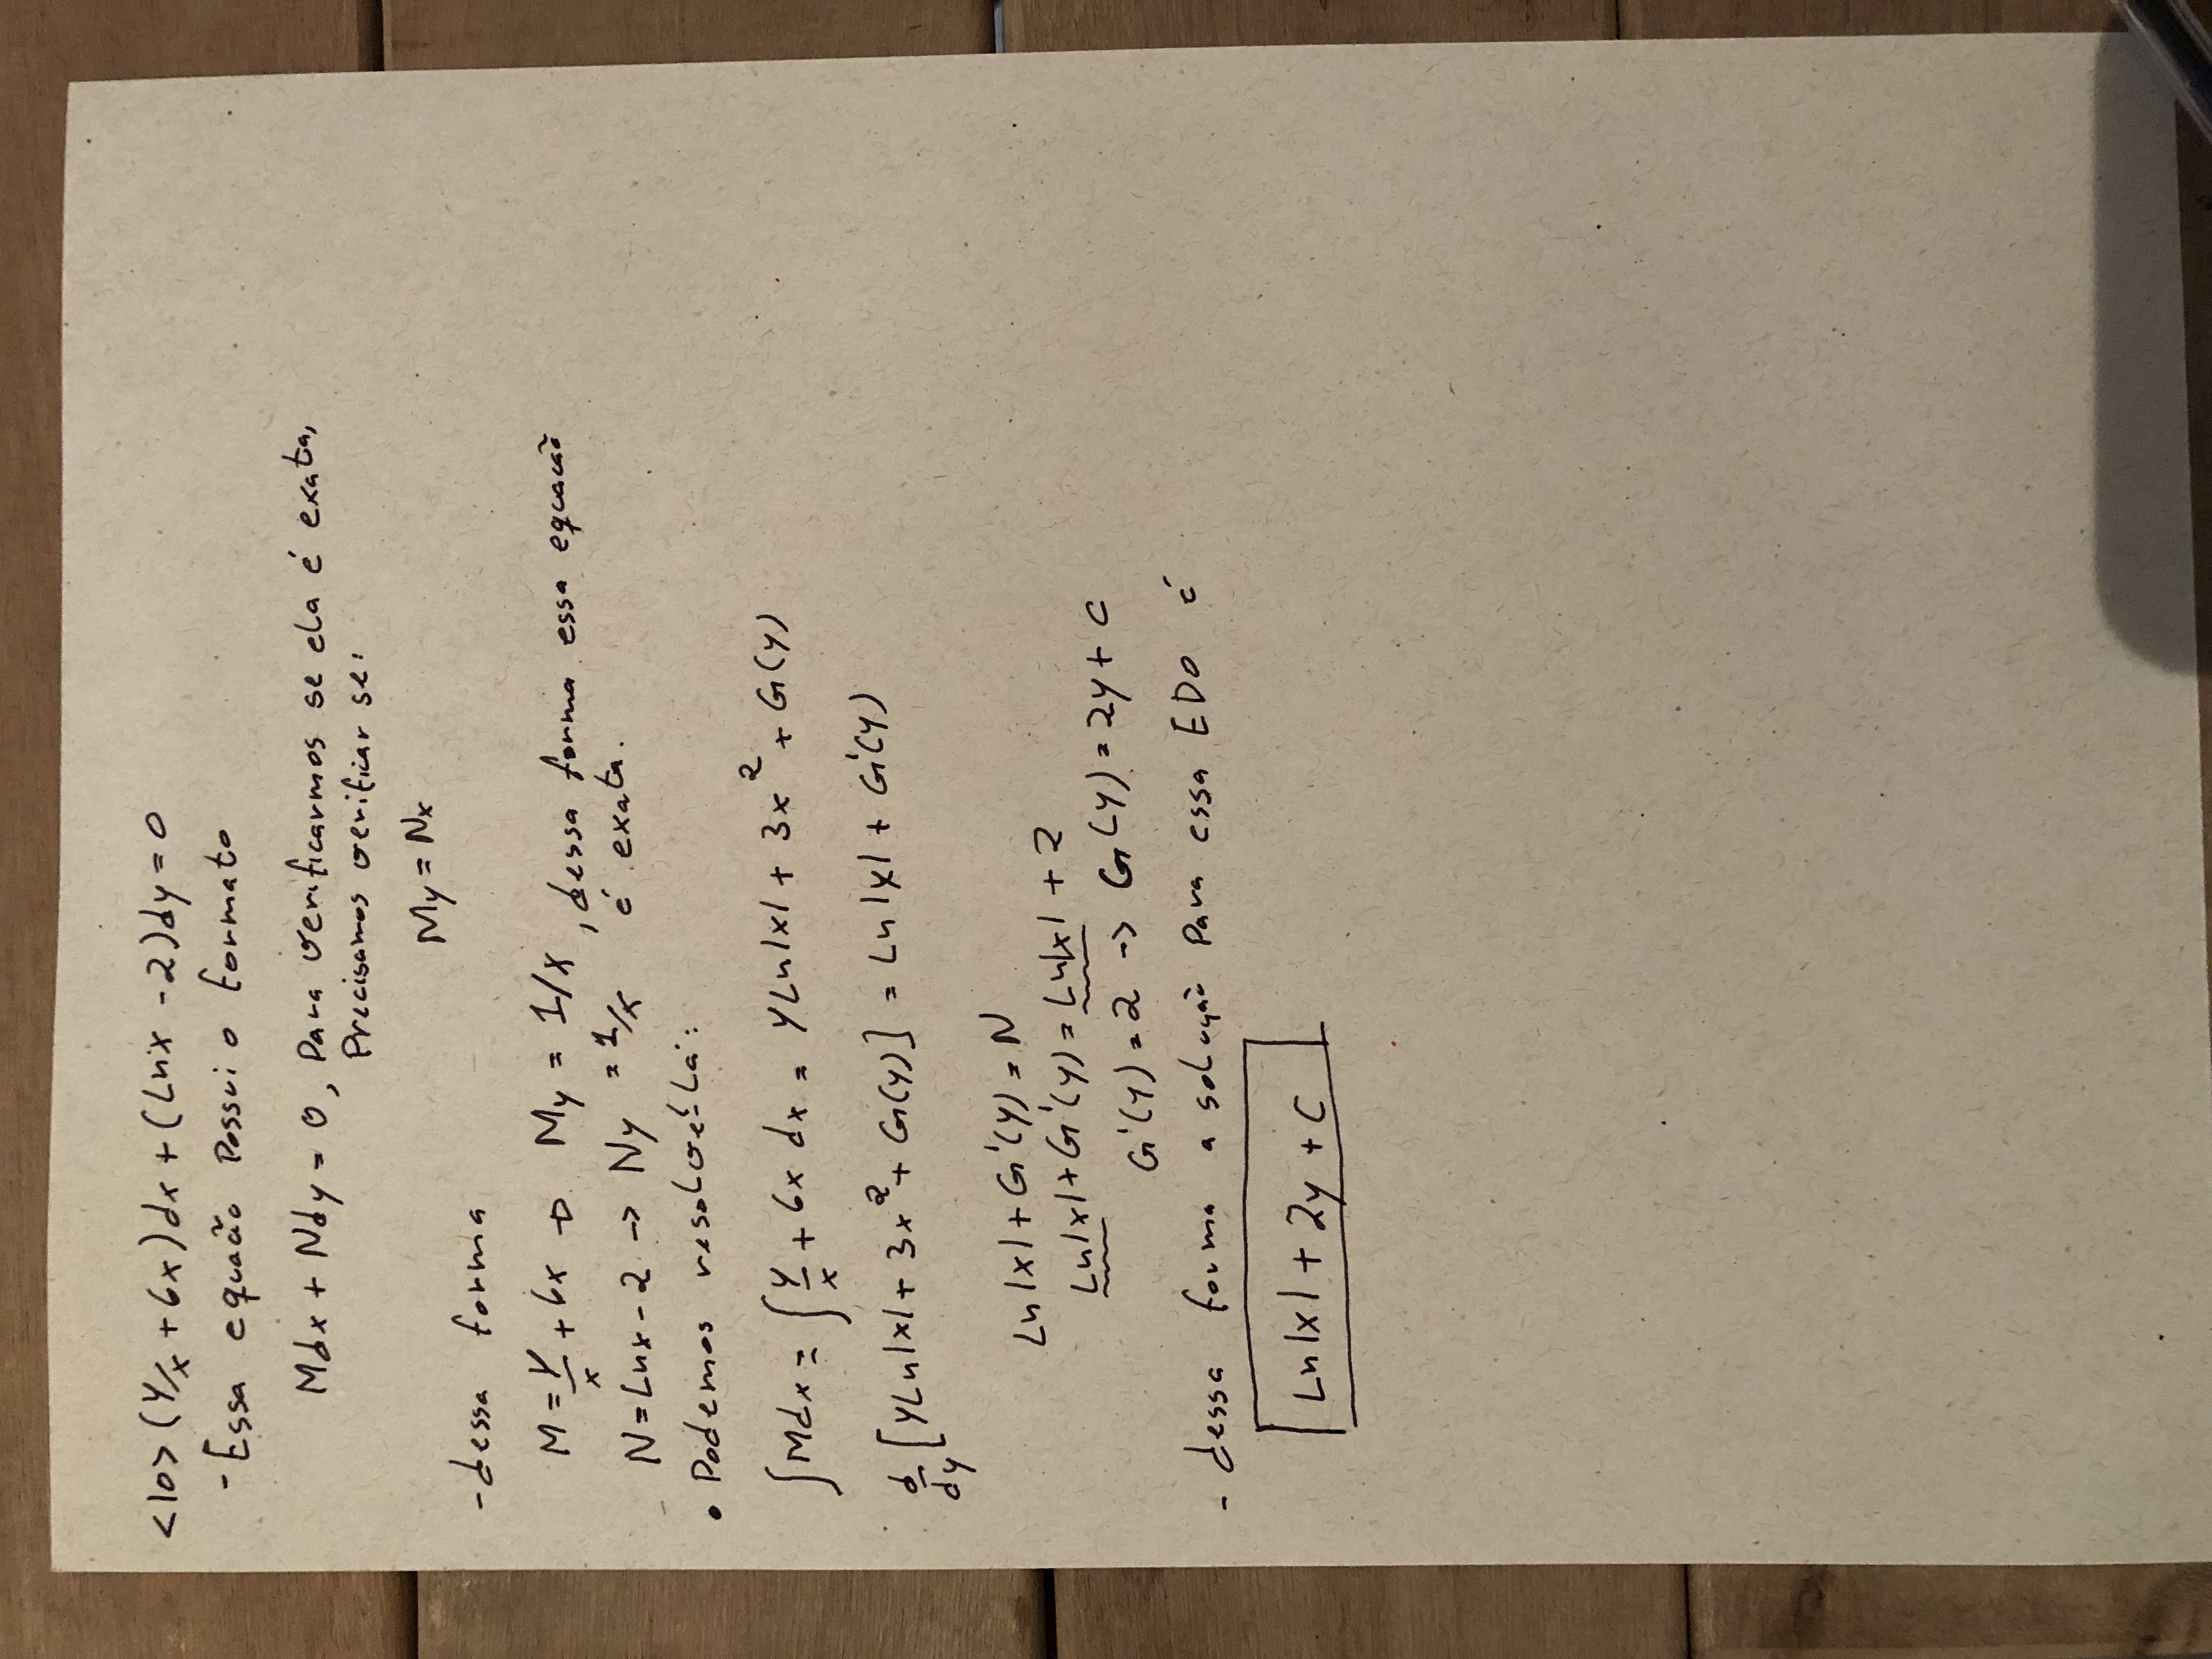 <10> (y/x + 6x)dx + (Lnx - 2)dy = 0
- Essa equação Possui o formato
Mdx + Ndy = 0, Para verificarmos se ela é exata,
Precisamos verificar se:
My = Nx
- dessa forma
M = y/x + 6x → My = 1/x, dessa forma essa equação
N = Lnx - 2 → Ny = 1/x é exata.
• Podemos resolvê-la:
∫Mdx = ∫ y/x + 6x dx = yLn|x| + 3x² + G(y)
d/dy [yLn|x| + 3x² + G(y)] = Ln|x| + G'(y)
Ln|x| + G'(y) = N
Ln|x| + G'(y) = Ln|x| + 2
G'(y) = 2 → G(y) = 2y + C
- dessa forma a solução Para essa EDO é
Ln|x| + 2y + C